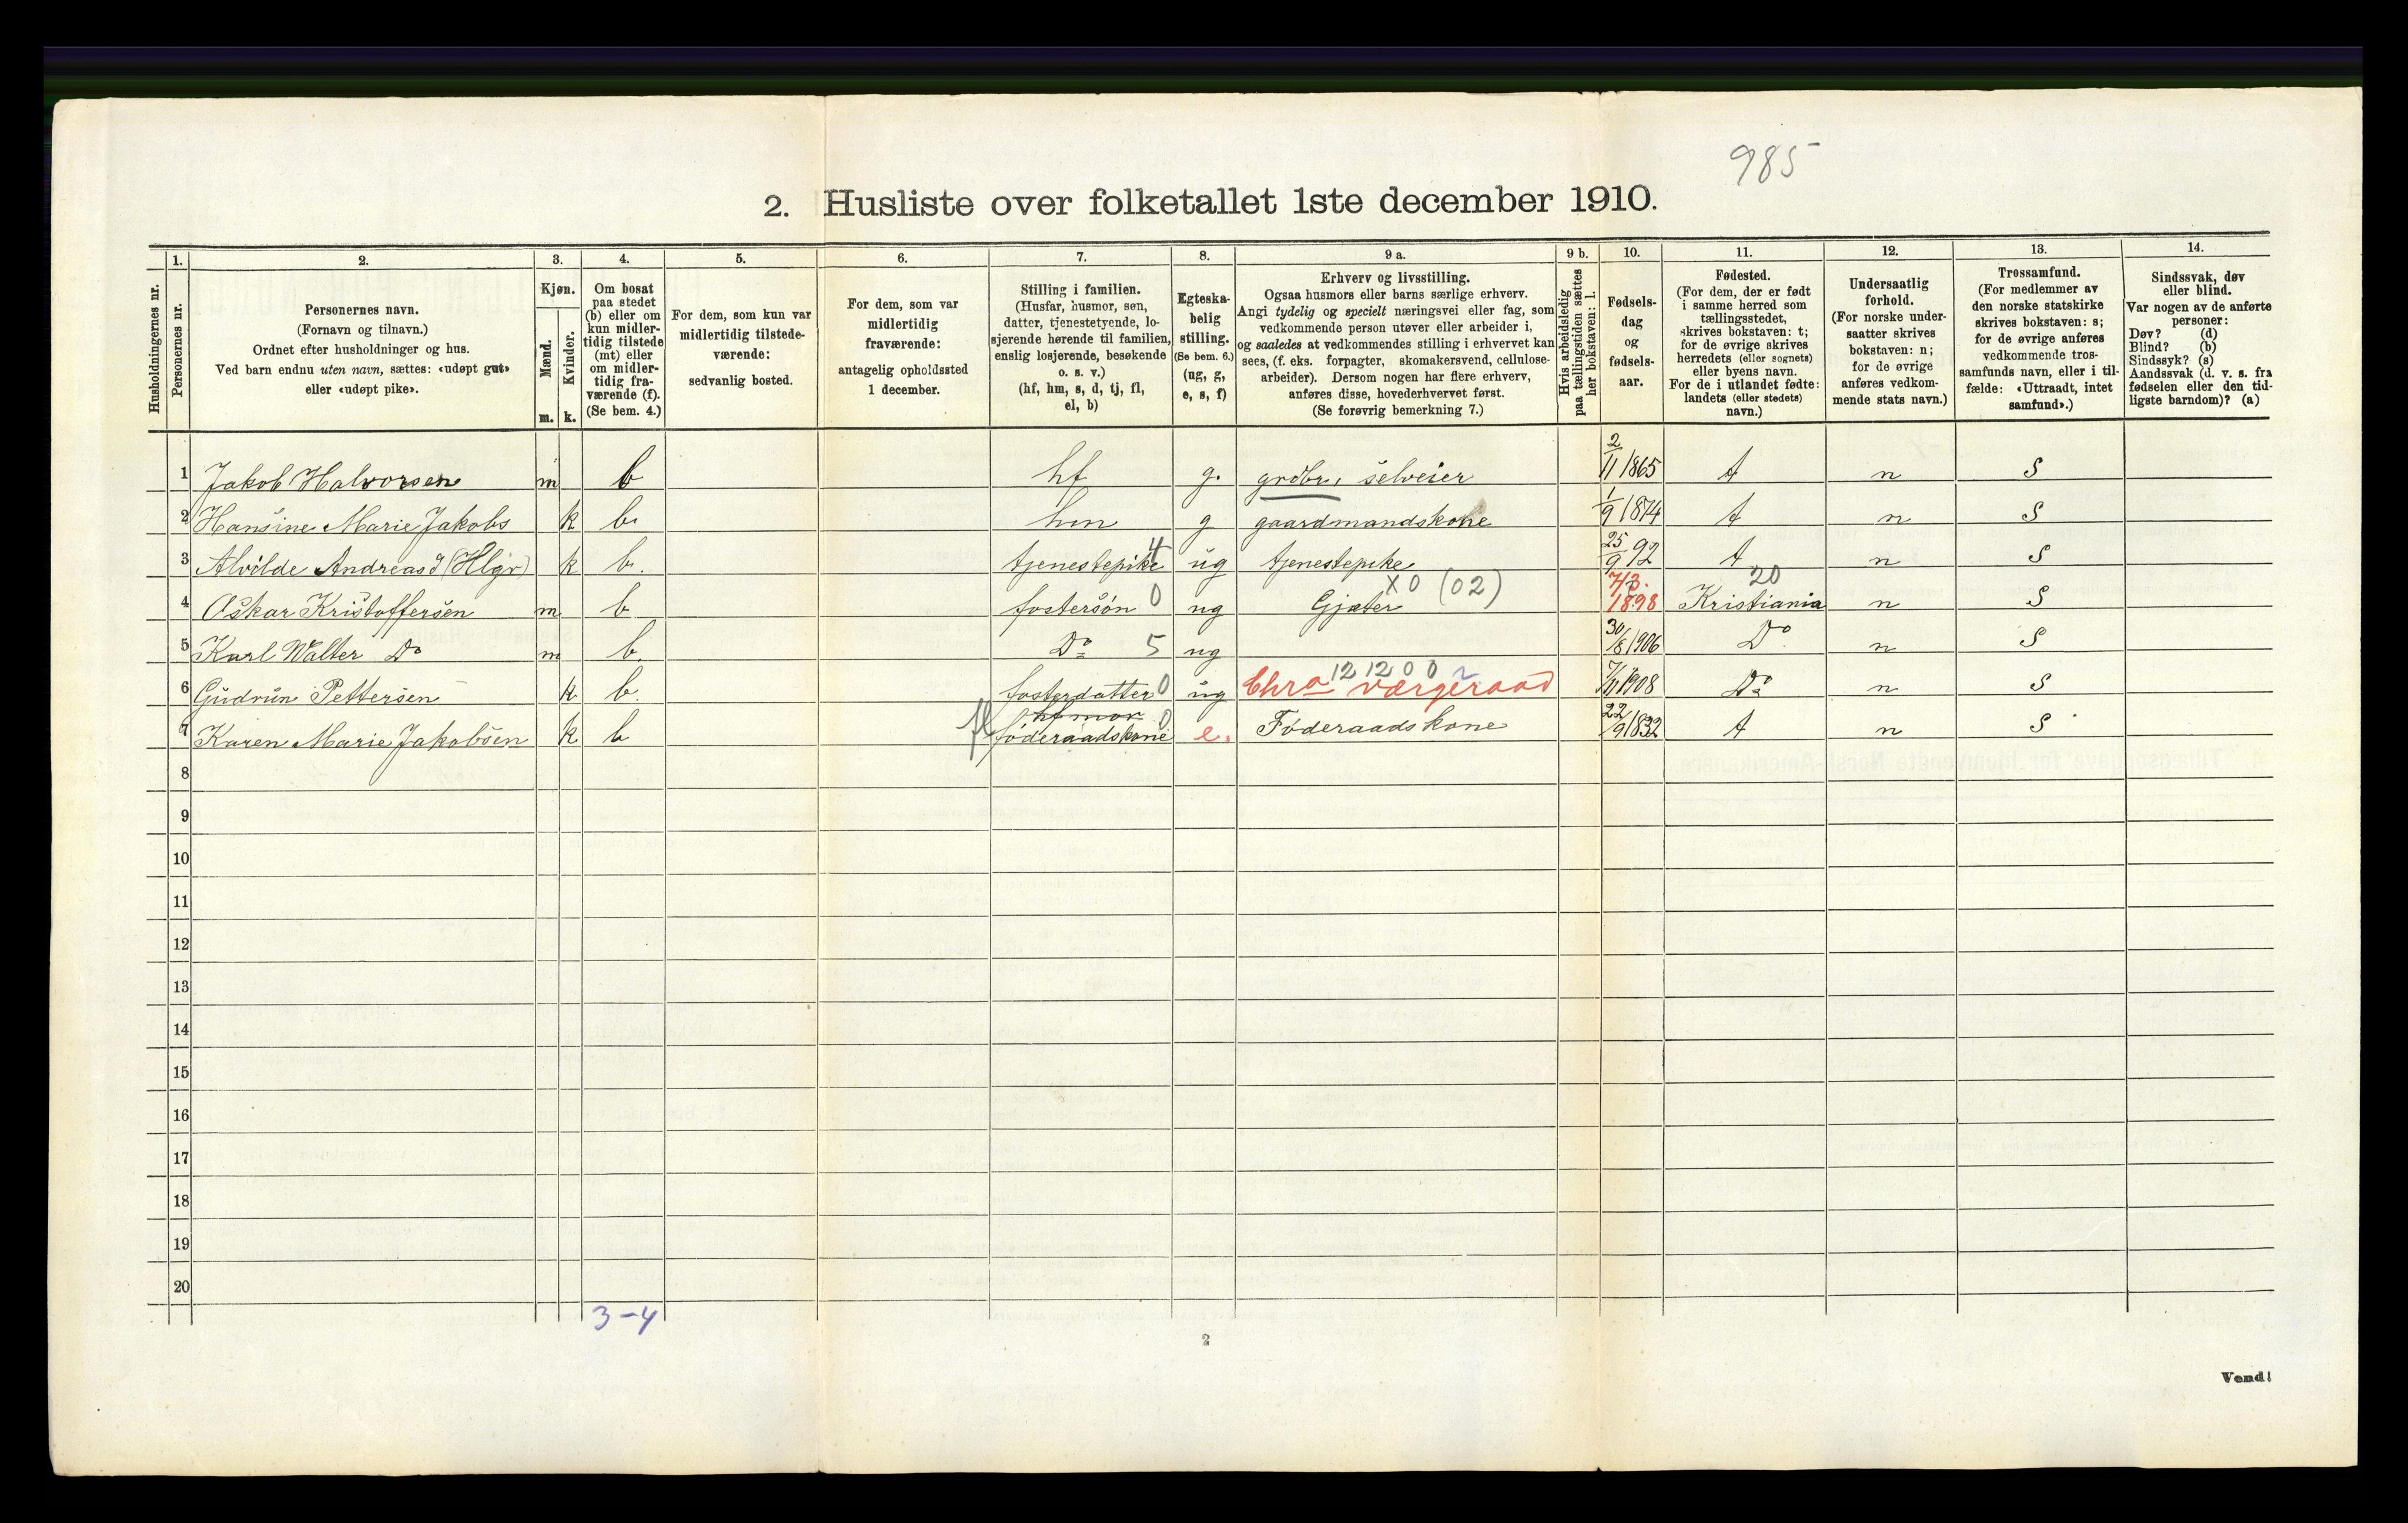 985
2. Husliste over folketallet 1ste december 1910.
Husholdningernes nr.
1.
Personernes nr.
2.
Personernes navn.
(Fornavn og tilnavn.)
Ordnet efter husholdninger og hus.
Ved barn endnu uten navn, sættes: «udøpt gut»
eller «udøpt pike».
3.
Kjøn.
Mænd.
Kvinder.
m. k.
4.
Om bosat
paa stedet
(b) eller om
kun midler-
tidig tilstede
(mt) eller
om midler-
tidig fra-
værende (f).
(Se bem. 4.)
5.
For dem, som kun var
midlertidig tilstede-
værende:
sedvanlig bosted.
6.
For dem, som var
midlertidig
fraværende:
antagelig opholdssted
1 december.
7.
Stilling i familien.
(Husfar, husmor, søn,
datter, tjenestetyende, lo-
sjerende hørende til familien,
enslig losjerende, besøkende
o. s. v.)
(hf, hm, s, d, tj, fl,
el, b)
8.
Egteska-
belig
stilling.
(Se bem. 6.)
(ug, g,
e, s, f)
9 a.
Erhverv og livsstilling.
Ogsaa husmors eller barns særlige erhverv.
Angi tydelig og specielt næringsvei eller fag, som
vedkommende person utøver eller arbeider i,
og saaledes at vedkommendes stilling i erhvervet kan
sees, (f. eks. forpagter, skomakersvend, cellulose-
arbeider). Dersom nogen har flere erhverv,
anføres disse, hovederhvervet først.
(Se forøvrig bemerkning 7.)
9 b.
Hvis arbeidsledig
paa tællingstiden sættes
her bokstaven: l.
10.
Fødsels-
dag
og
fødsels-
aar.
11.
Fødested.
(For dem, der er født
i samme herred som
tællingsstedet,
skrives bokstaven: t;
for de øvrige skrives
herredets (eller sognets)
eller byens navn.
For de i utlandet fødte:
landets (eller stedets)
navn.)
12.
Undersaatlig
forhold.
(For norske under-
saatter skrives
bokstaven: n;
for de øvrige
anføres vedkom-
mende stats navn.)
13.
Trossamfund.
(For medlemmer av
den norske statskirke
skrives bokstaven: s;
for de øvrige anføres
vedkommende tros-
samfunds navn, eller i til-
fælde: «Uttraadt, intet
samfund».)
14.
Sindssvak, døv
eller blind.
Var nogen av de anførte
personer:
Døv? (d)
Blind? (b)
Sindssyk? (s)
Aandssvak (d. v. s. fra
fødselen eller den tid-
ligste barndom)? (a)
1 Jakob Halvorsen m b hf g. grdbr, selveier 2/11 1865 t n S
2 Hansine Marie Jakobs k b. hm g gaardmandskone 1/9 1874 t n S
3 Alvilde Andreasd (Hlgr) k b. tjenestepike 4 ug tjenestepike 25/9 92 t n S
4 Oskar Kristoffersen m b fostersøn 0 ug Gjæter X0 (02) 7/3. 1898 Kristiania 20 n S
5 Karl Walter Do m b. Do 5 ug 30/8 1906 Do n S
6 Gudrun Pettersen k b. fosterdatter 0 ug Chra værgeraad 12 12 0 0 7/11 1908 Do n S
7 Karen Marie Jakobsen k b fl hf mor føderaadskone 0 e. Føderaadskone 22/9 1832 t n S
8
9
10
11
12
13
14
15
16
17
18
19
20
3-4
2
Vend!